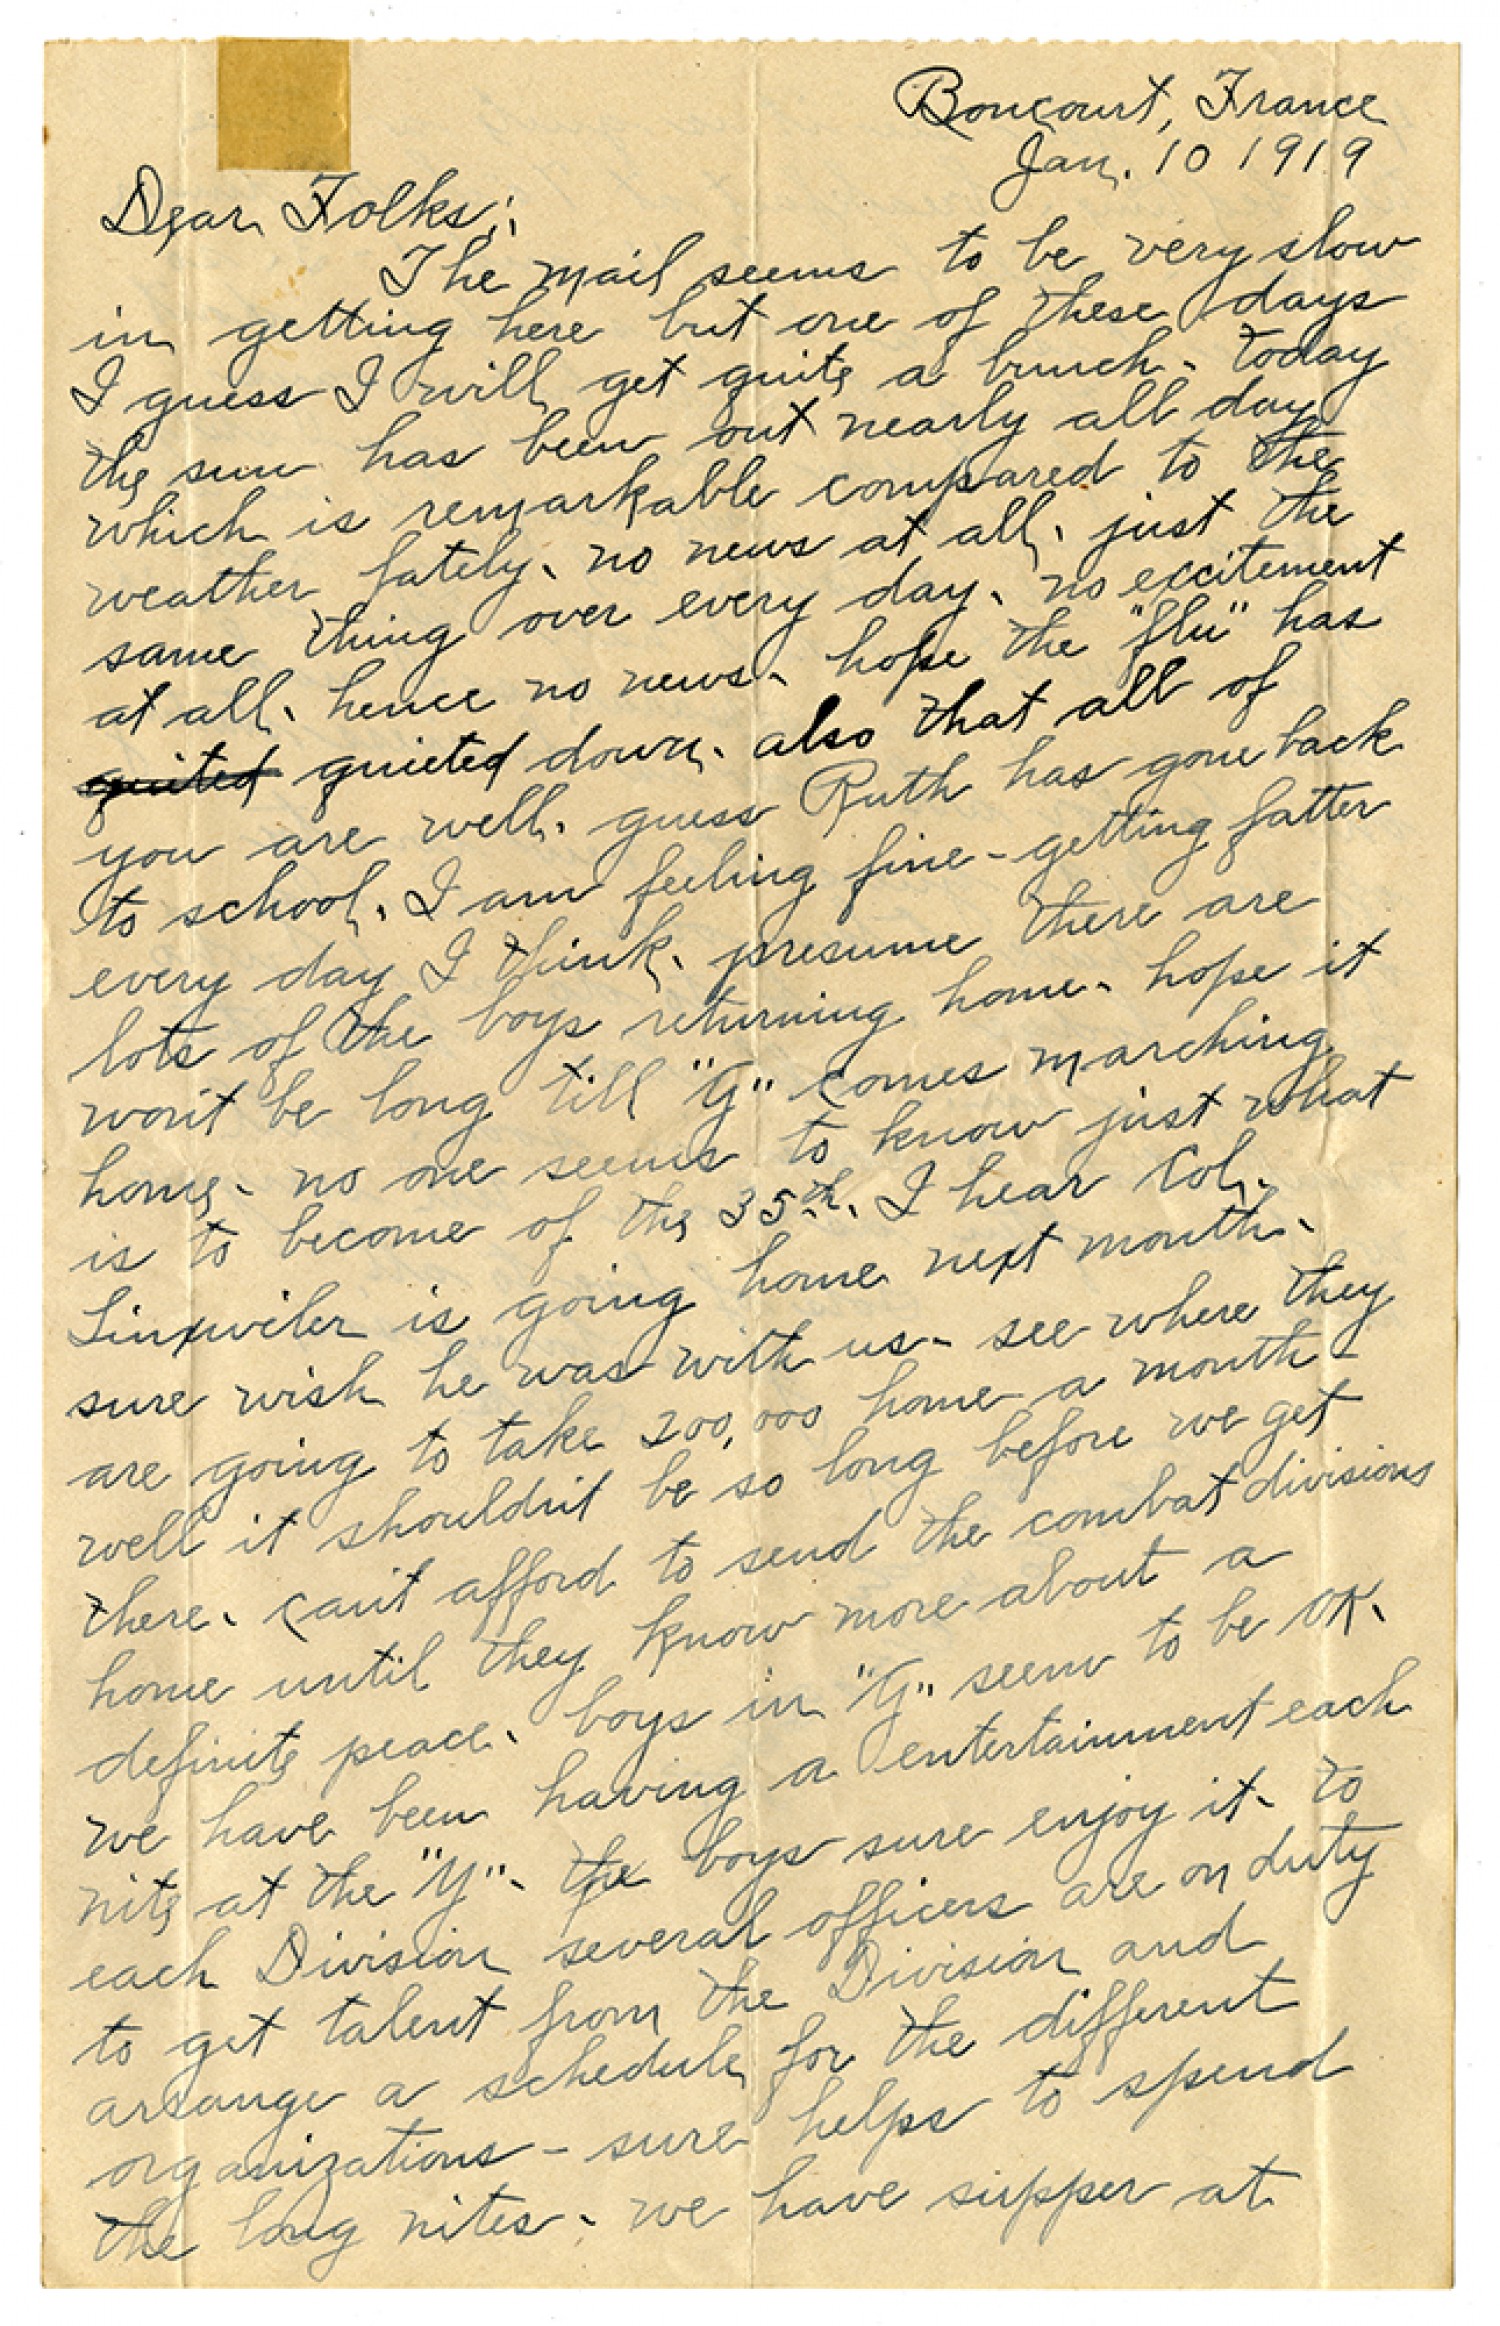 Boncourt, France
Jan. 10 1919
Dear Folks:
The mail seems to be very slow
in getting here but one of these days
I guess I will get quite a bunch. today
the sun has been out nearly all day
which is remarkable compared to the
weather lately. no news at all. just the
same thing over every day. no excitement
at all. hence no news. hope the "flu" has
quited quieted down. also that all of
you are well. guess Ruth has gone back
to school. I am feeling fine - getting fatter
every day I think. presume there are
lots of the boys returning home. hope it
won't be long till "G" comes marching
home. no one seems to know just what
is to become of the 35th. I hear Col.
Linxwiler is going home next month.
sure wish he was with us - see where they
are going to take 200,000 home a month -
well it shouldn't be so long before we get
there. can't afford to send the combat divisions
home until they know more about a
definite peace. boys in "G" seem to be OK.
we have been having a entertainment each
nite at the "Y". the boys sure enjoy it. to
each Division several officers are on duty
to get talent from the Division and
arrange a schedule for the different
organizations - sure helps to spend
the long nites. we have supper at